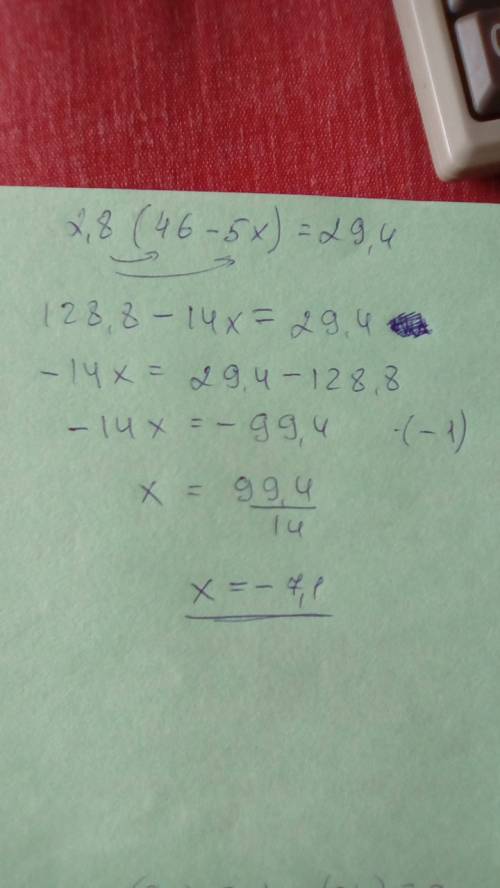 2,8 (46 - 5x) = 29,4
128,8 - 14x = 29,4
-14x = 29,4 - 128,8
-14x = -99,4 ·(-1)
x = 99,4/14
x = -7,1